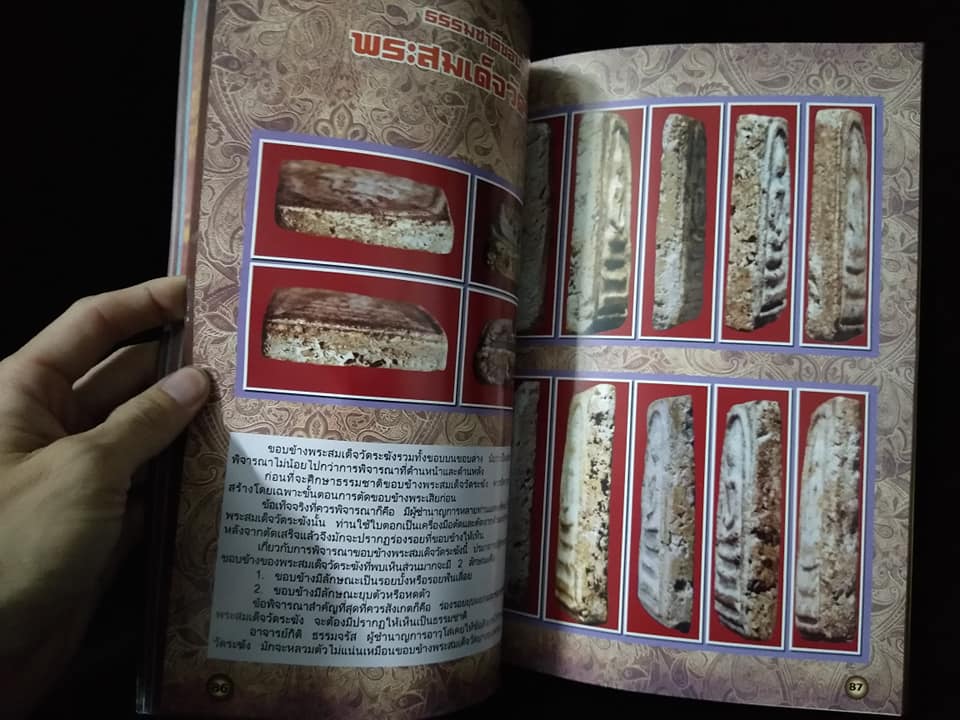 ธรรมชาติของ
พระสมเด็จวัด
ขอบข้างพระสมเด็จวัดระฆังรวมทั้งขอบบนขอบล่าง
พิจารณาไม่น้อยไปกว่าการพิจารณาที่ด้านหน้าและด้านหลัง
ก่อนที่จะศึกษาธรรมชาติขอบข้างพระสมเด็จวัดระฆัง
สร้างโดยเฉพาะขั้นตอนการตัดขอบข้างพระเสียก่อน
ข้อเท็จจริงที่ควรพิจารณาก็คือ มีผู้ชำนาญการหลายท่าน
พระสมเด็จวัดระฆังนั้น ท่านใช้ใบตอกเป็นเครื่องมือตัดและตัดจาก
หลังจากตัดเสร็จแล้วจึงมักจะปรากฏร่องรอยที่ขอบข้างให้เห็น
เกี่ยวกับการพิจารณาขอบข้างพระสมเด็จวัดระฆังนี้
ขอบข้างของพระสมเด็จวัดระฆังที่พบเห็นส่วนมากจะมี 2 ลักษณะคือ
1. ขอบข้างมีลักษณะเป็นรอยบั้งหรือรอยฟันเลื่อย
2. ขอบข้างมีลักษณะยุบตัวหรือหดตัว
ข้อพิจารณาสำคัญที่สุดที่ควรสังเกตก็คือ
พระสมเด็จวัดระฆัง จะต้องมีปรากฏให้เห็นเป็นธรรมชาติ
อาจารย์กิติ ธรรมจรัส ผู้ชำนาญการอาวุโสเคยให้ข้อ
วัดระฆัง มักจะหลวมตัวไม่แน่นเหมือนขอบข้างพระสมเด็จวัด
86
87